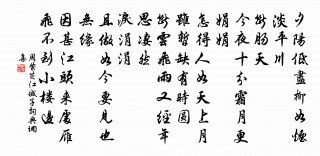 夕陽低盡柳如煙
淡平川
斷腸天
今夜十分霜月更
娟娟
怎得人如天上月
雖暫缺有時圓
斷雲飛雨又經年
思凄然
淚涓涓
且做如今要見也
無緣
因甚江頭來處雁
飛不到小樓邊
周紫芝江城子詞典調
集